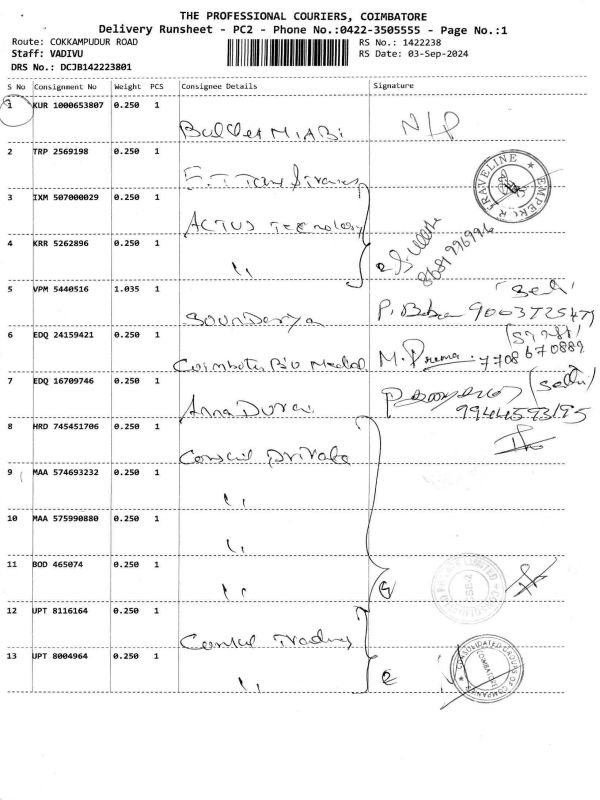 THE PROFESSIONAL COURIERS, COIMBATORE
Delivery Runsheet - PC2 - Phone No.:0422-3505555 - Page No.:1
Route: COKKAMPUDUR ROAD
RS No.: 1422238
Staff: VADIVU
RS Date: 03-Sep-2024
DRS No.: DCJB142223801
S No Consignment No Weight PCS Consignee Details Signature
1 KUR 1000653807 0.250 1
N/P
2 TRP 2569198 0.250 1
EMPEROR TRAVELINE
3 IXM 507000029 0.250 1
ACTUS
4 KRR 5262896 0.250 1
"
5 VPM 5440516 1.035 1
Soundarya
P. Baba 9003725479
6 EDQ 24159421 0.250 1
M. Prema. 7708670889
7 EDQ 16709746 0.250 1
Anna Durai
9944593195
8 HRD 745451706 0.250 1
Private
9 MAA 574693232 0.250 1
"
10 MAA 575990880 0.250 1
"
11 BOD 465074 0.250 1
"
12 UPT 8116164 0.250 1
Trading
13 UPT 8004964 0.250 1
"
CONSOLIDATED GROUPS OF COMPANIES
COIMBATORE